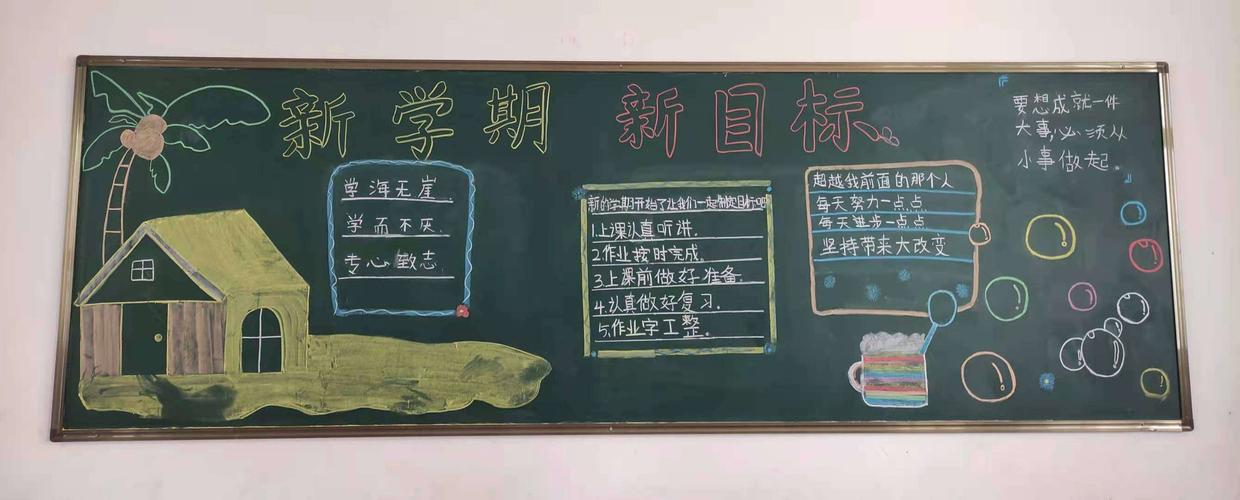 新学期 新目标
学海无崖
学而不厌.
专心致志
新的学期开始了让我们一起制定目标吧
1.上课认真听讲.
2.作业按时完成.
3.上课前做好准备.
4.认真做好复习.
5.作业字工整.
超越我前面的那个人
每天努力一点点
每天进步一点点
坚持带来大改变
『要想成就一件
大事,必须从
小事做起。』